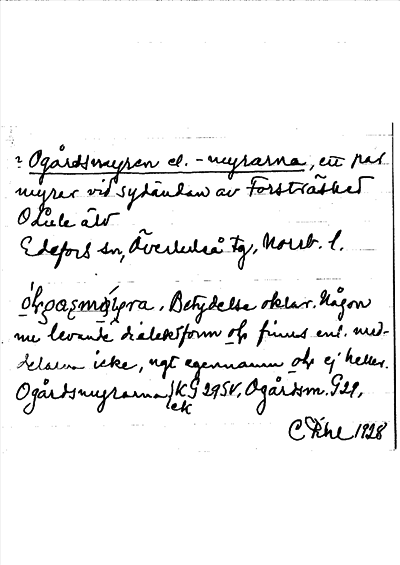 ? Ogårdsmyren el. -myrarna, ett par
myrar vid sydändan av Forsträsket
O Lule älv
Edefors sn, Överluleå tg, Norrb. l.
Betydelse oklar. Någon
nu levande dialektform finns enl. med-
delarna icke, ngt egennamn ej heller.
Ogårdsmyrarna EK G 29SV, Ogårdsm. G29,
ek
1928